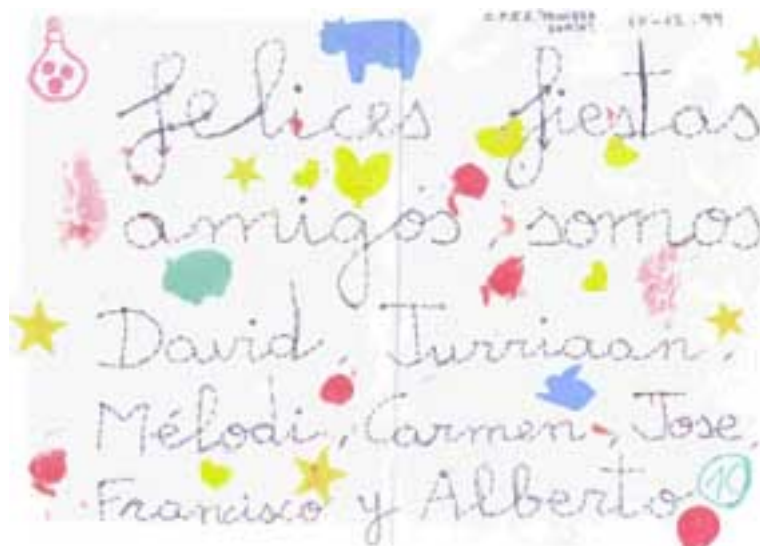 C.P.E.E.
17-12-99
felices fiestas
amigos, somos
David, Jurriaan,
Mélodi, Carmen, Jose,
Francisco y Alberto
10